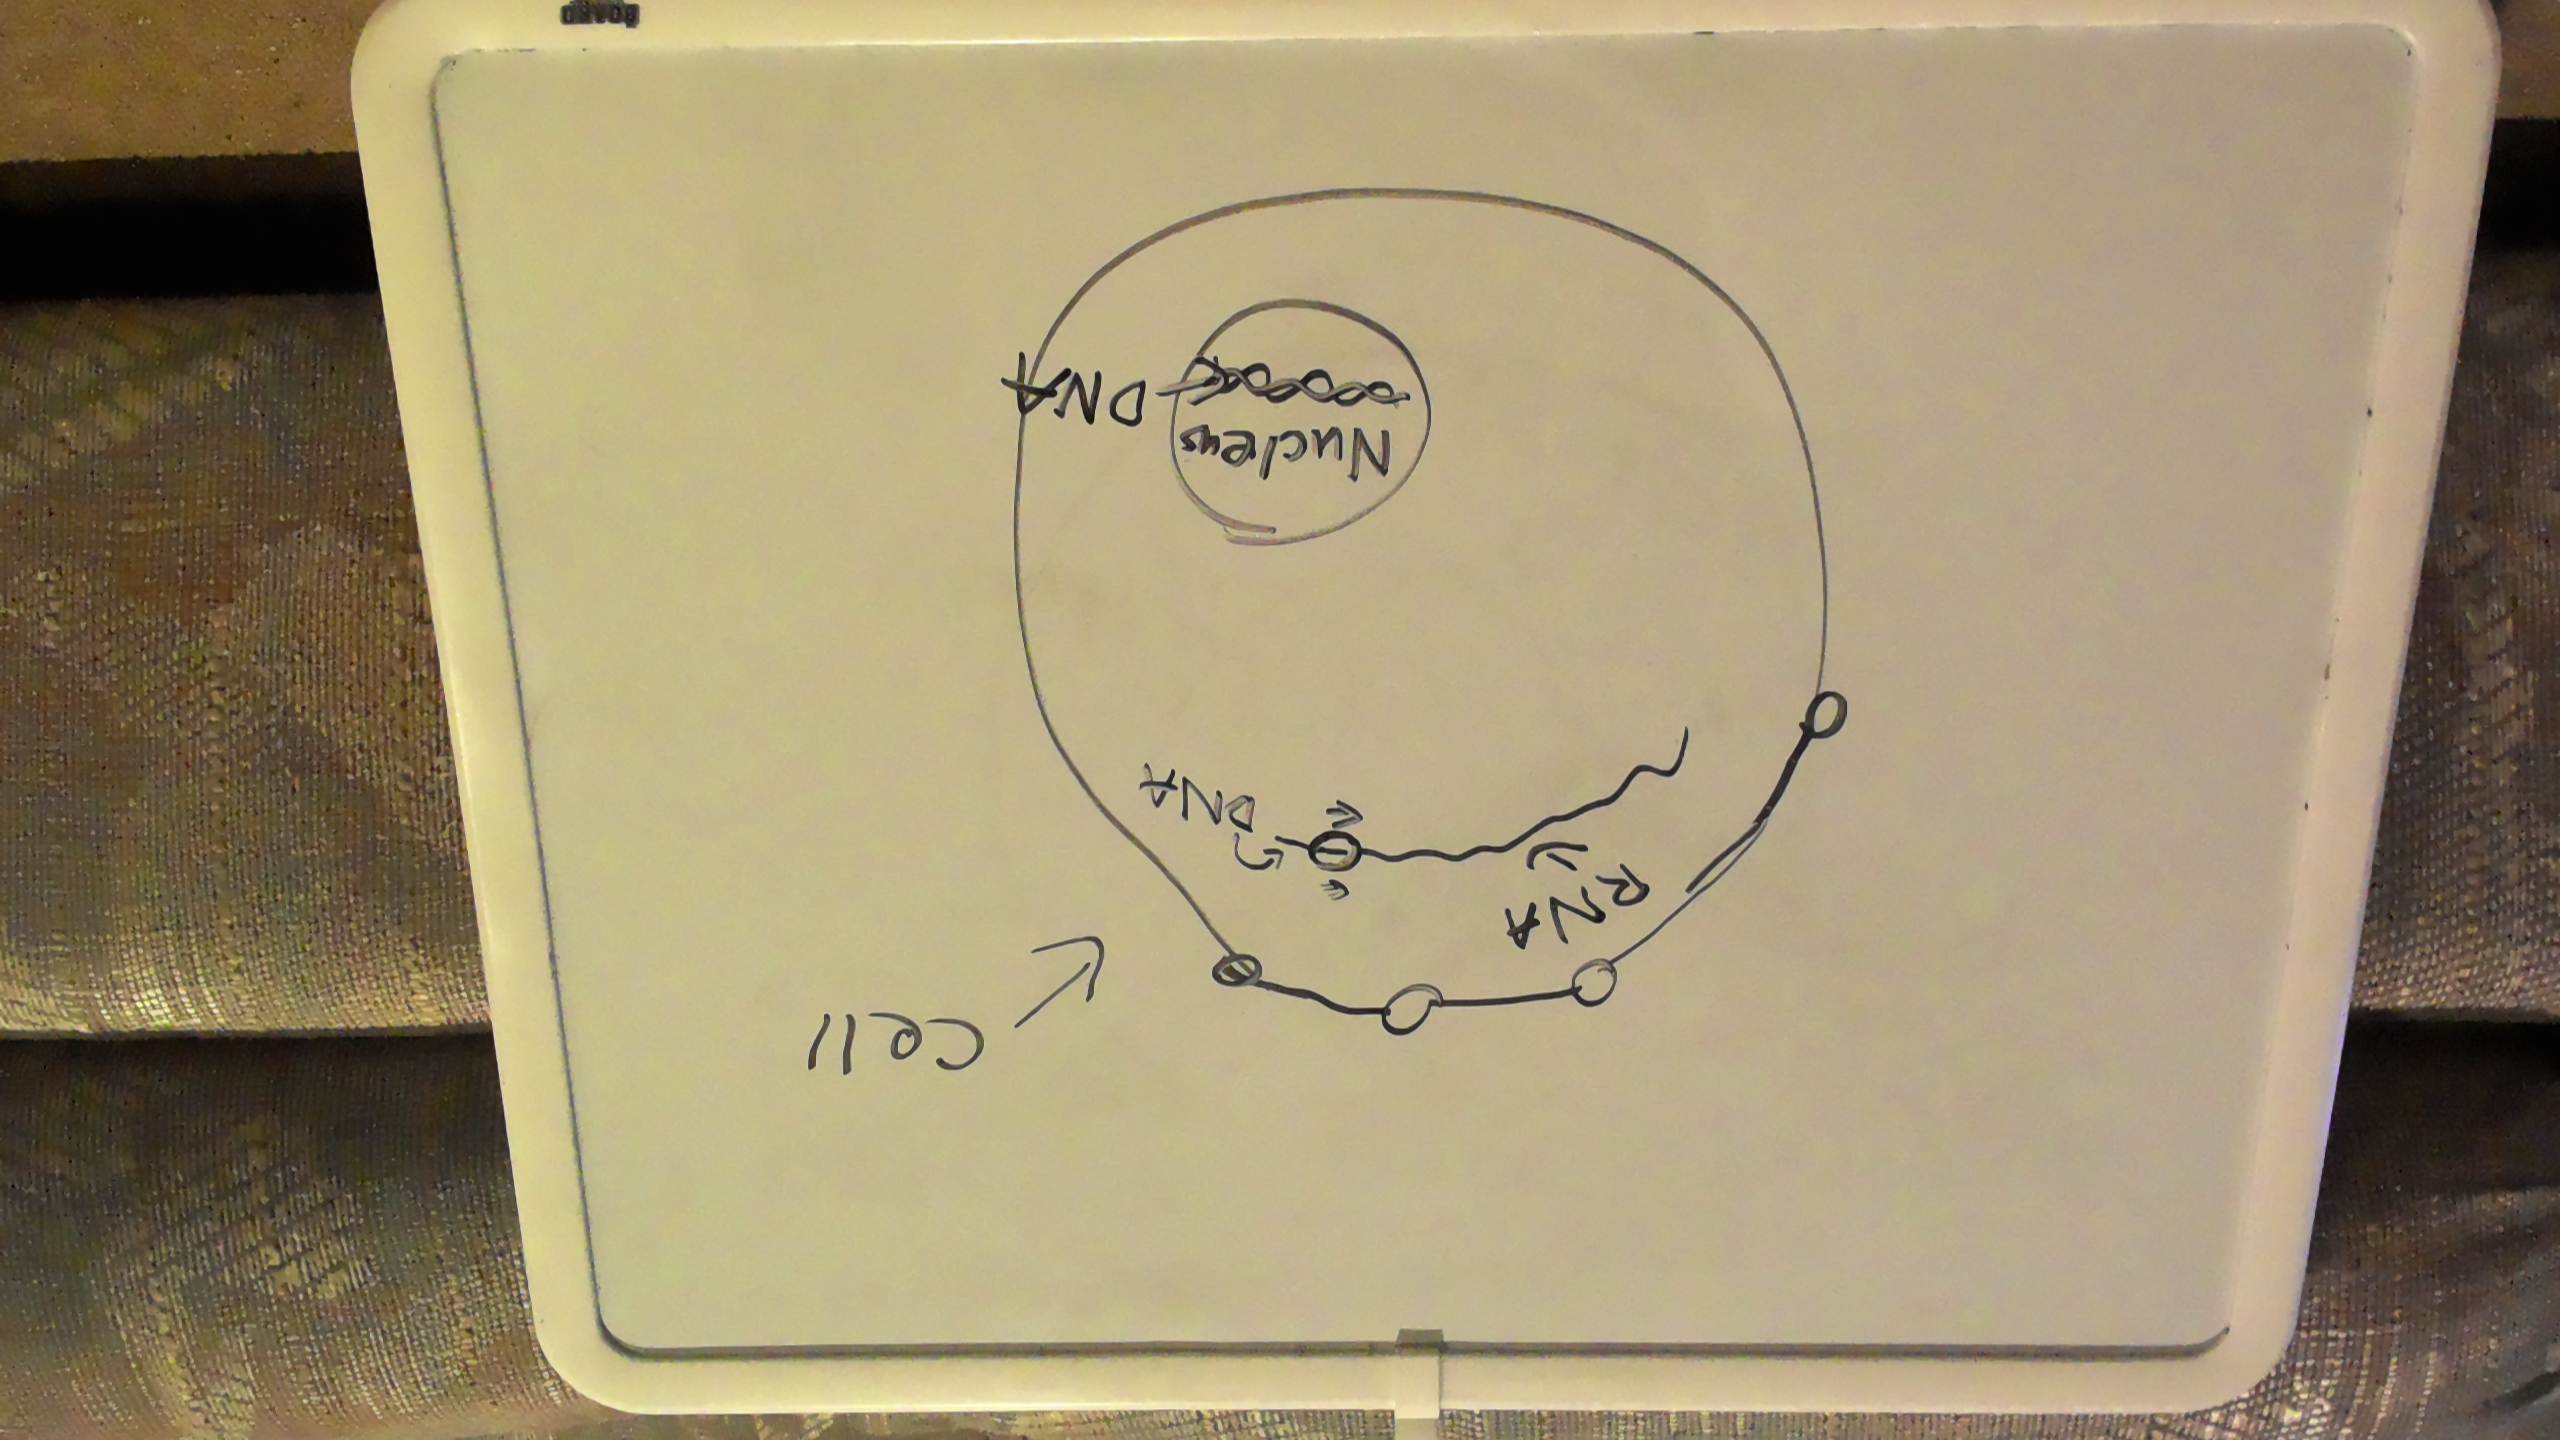 Cell
RNA
DNA
Nucleus
DNA
BOARD